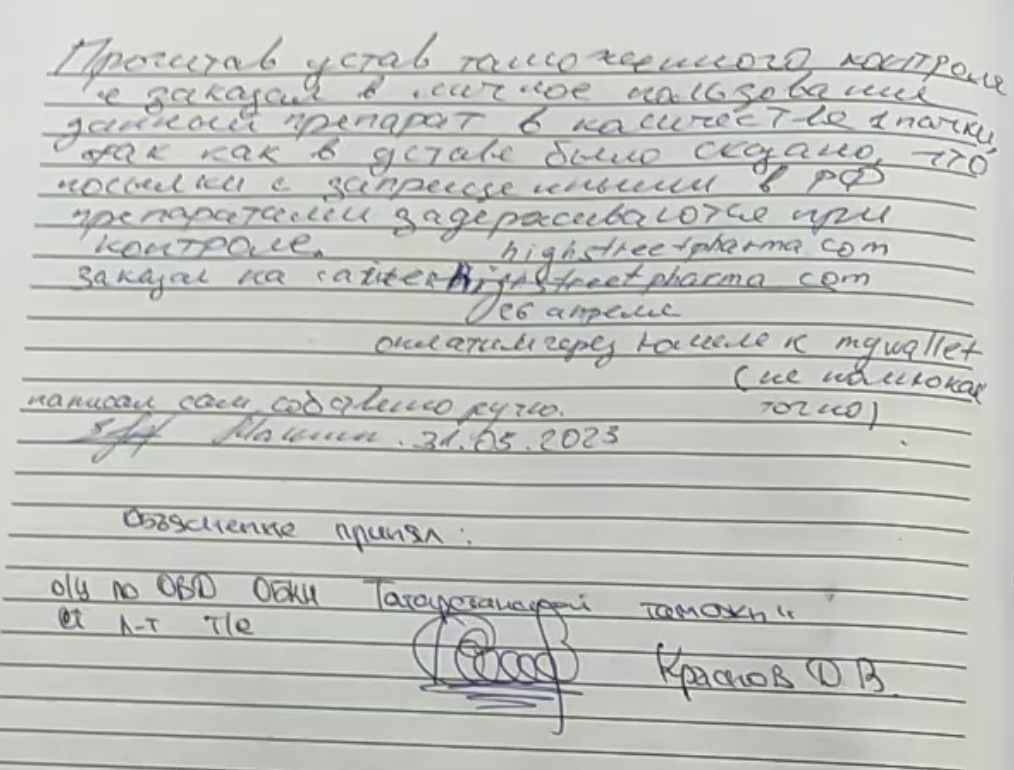 Прочитав устав таможенного контроля
я заказал в личное пользование
данный препарат в количестве 1 пачки,
так как в уставе было сказано, что
посылки с запрещенными в РФ
препаратами задерживаются при
контроле. highstreetpharma com
заказал на сайте highstreetpharma com
26 апреля
оплатил через кошелек mywallet
(не помню как
написал сам собственно ручно. точно)
31.05.2023
Объяснение принял:
о/у по ОВД ОБКН Татарстанской таможни
ст л-т т/с
Краснов Д.В.